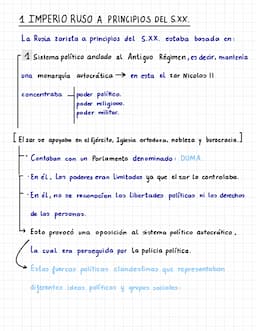 1 IMPERIO RUSO A PRINCIPIOS DEL S.XX.
La Rusia zarista a principios del S.XX. estaba basada en:
1 Sistema político anclado al Antiguo Régimen, es decir, mantenía
una monarquía autocrática → en esta el zar Nicolas II
concentraba
poder político.
poder religioso.
poder militar.
[El zar se apoyaba en el Ejército, Iglesia ortodoxa, nobleza y burocracia.]
- Contaban con un Parlamento denominado: DUMA.
- En él, Los poderes eran limitados ya que el zar lo controlaba.
- En él, no se reconocían las libertades políticas ni los derechos
de las personas.
Esto provocó una oposición al sistema político autocrático,
la cual era perseguida por la policía política.
Estas fuerzas políticas clandestinas que representaban
diferentes ideas políticas y grupos sociales: